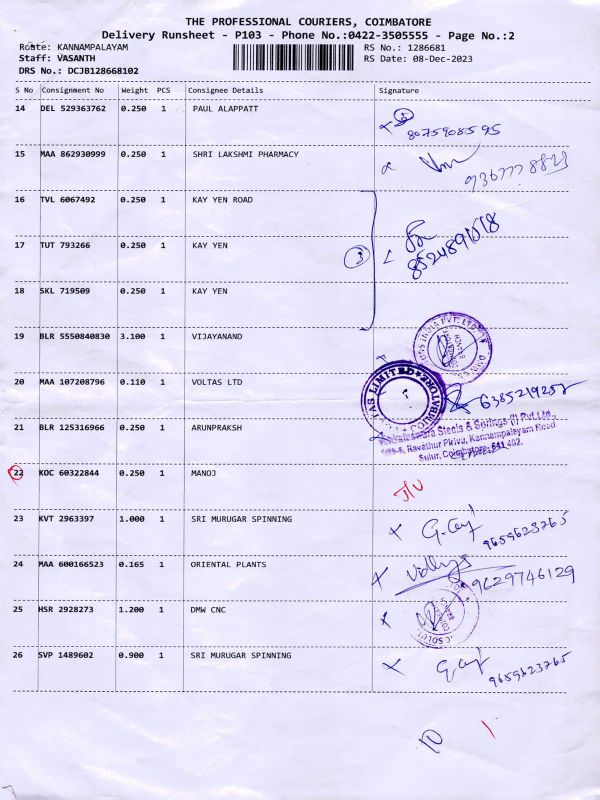 THE PROFESSIONAL COURIERS, COIMBATORE
Delivery Runsheet - P103 - Phone No.:0422-3505555 - Page No.:2
Route: KANNAMPALAYAM RS No.: 1286681
Staff: VASANTH RS Date: 08-Dec-2023
DRS No.: DCJB128668102
S No Consignment No Weight PCS Consignee Details Signature
14 DEL 529363762 0.250 1 PAUL ALAPPATT
8075908595
15 MAA 862930999 0.250 1 SHRI LAKSHMI PHARMACY
16 TVL 6067492 0.250 1 KAY YEN ROAD
17 TUT 793266 0.250 1 KAY YEN 3 8524891618
18 SKL 719509 0.250 1 KAY YEN
19 BLR 5550840830 3.100 1 VIJAYANAND
20 MAA 107208796 0.110 1 VOLTAS LTD
21 BLR 125316966 0.250 1 ARUNPRAKSH
Steels & Springs (I) Pvt Ltd.,
Ravathur Pirivu, Kannampalayam Road
Sulur, Coimbatore, 641 402.
22 KOC 60322844 0.250 1 MANOJ
23 KVT 2963397 1.000 1 SRI MURUGAR SPINNING
9659623765
24 MAA 600166523 0.165 1 ORIENTAL PLANTS
9629746129
25 HSR 2928273 1.200 1 DMW CNC
26 SVP 1489602 0.900 1 SRI MURUGAR SPINNING
9659623765
10 1